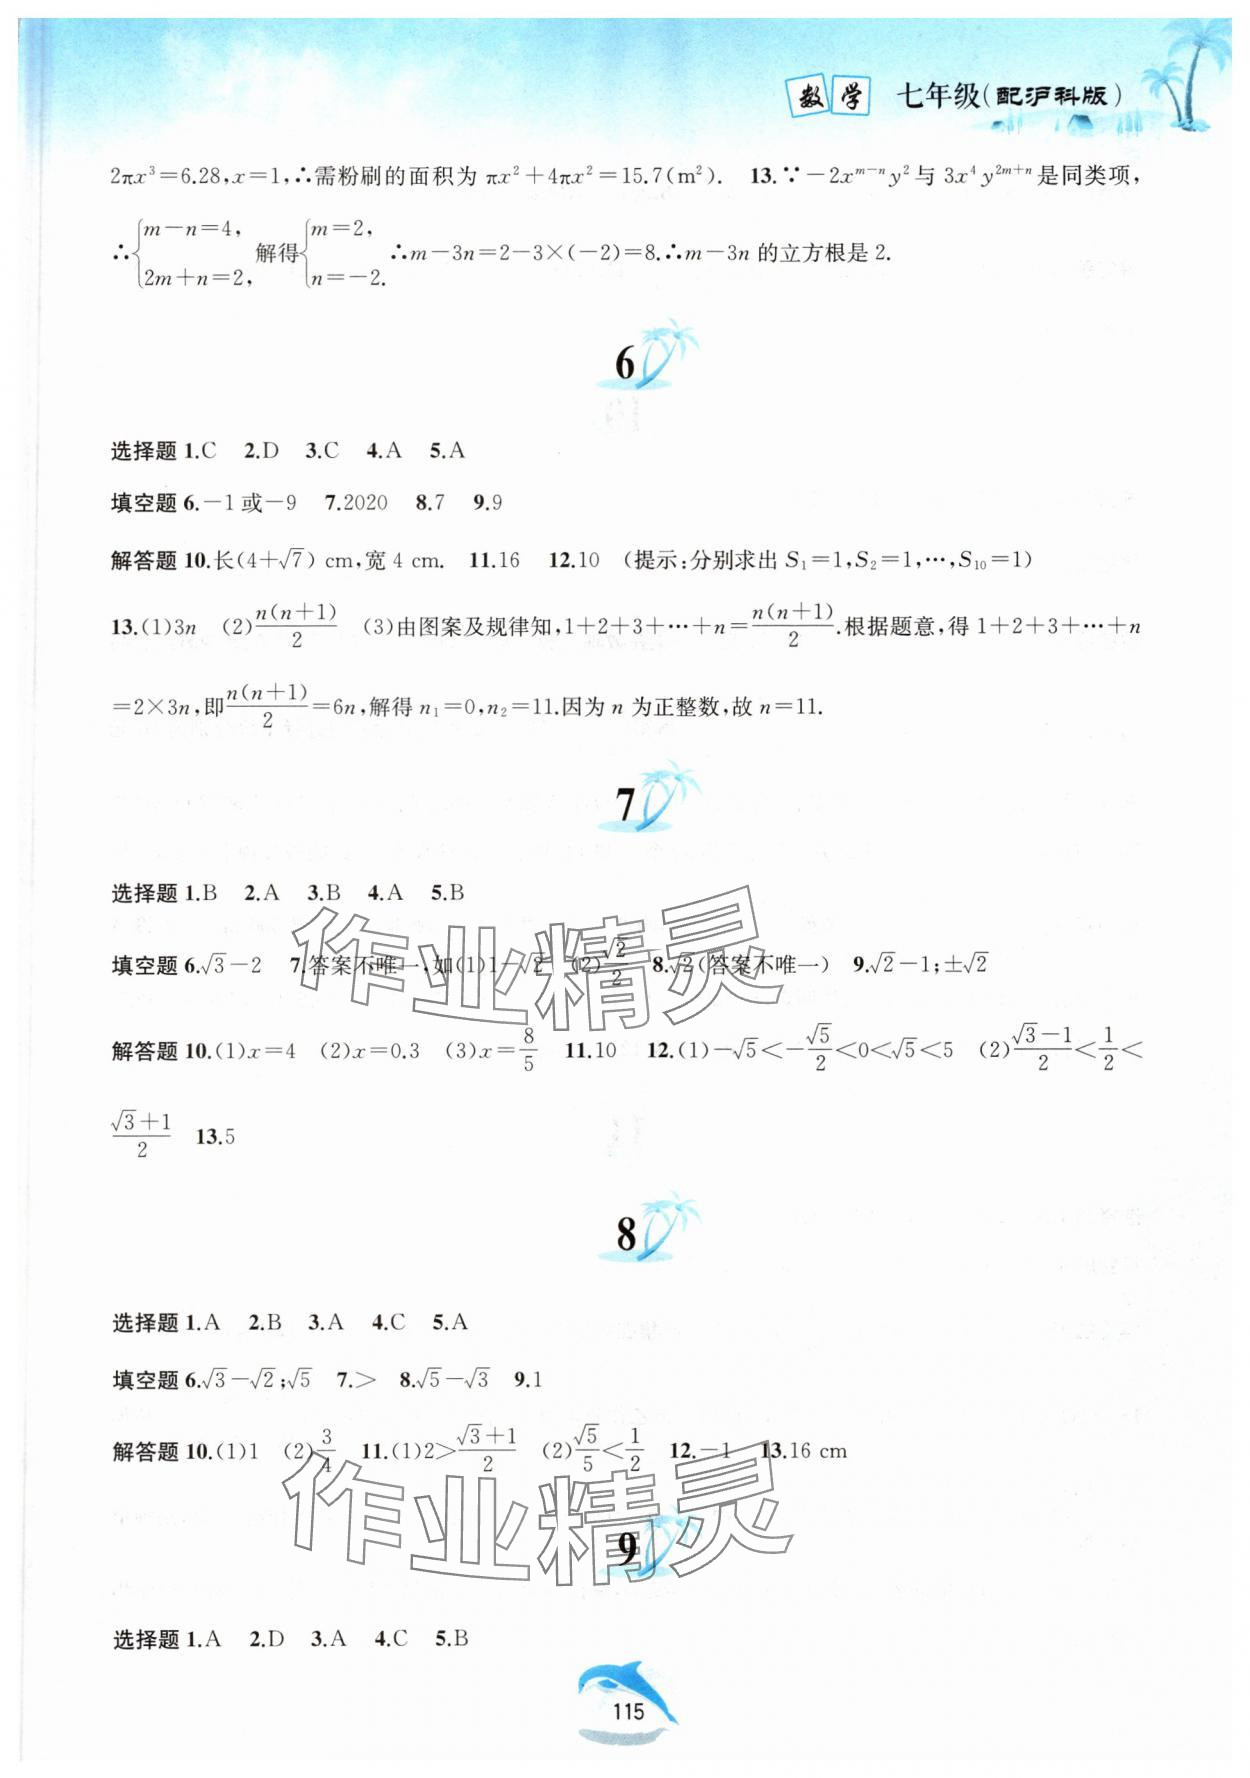 数学 七年级(配沪科版)
2πx³=6.28,x=1,∴需粉刷的面积为 πx²+4πx²=15.7(m²). 13.∵-2x^{m-n}y²与 3x⁴y^{2m+n}是同类项,
∴{m-n=4, 2m+n=2, 解得{m=2, n=-2. ∴m-3n=2-3×(-2)=8.∴m-3n 的立方根是 2.
6
选择题 1.C 2.D 3.C 4.A 5.A
填空题 6.-1或-9 7.2020 8.7 9.9
解答题 10.长(4+√7) cm,宽 4 cm. 11.16 12.10 (提示:分别求出 S₁=1,S₂=1,…,S₁₀=1)
13.(1)3n (2)n(n+1)/2 (3)由图案及规律知,1+2+3+…+n=n(n+1)/2.根据题意,得 1+2+3+…+n
=2×3n,即n(n+1)/2=6n,解得 n₁=0,n₂=11.因为 n 为正整数,故 n=11.
7
选择题 1.B 2.A 3.B 4.A 5.B
填空题 6.√3-2 7.答案不唯一,如(1)1-√2 (2)√2/2 8.√2(答案不唯一) 9.√2-1;±√2
解答题 10.(1)x=4 (2)x=0.3 (3)x=8/5 11.10 12.(1)-√5<-√5/2<0<√5<5 (2)(√3-1)/2<1/2<
(√3+1)/2 13.5
8
选择题 1.A 2.B 3.A 4.C 5.A
填空题 6.√3-√2;√5 7.> 8.√5-√3 9.1
解答题 10.(1)1 (2)3/4 11.(1)2>(√3+1)/2 (2)√5/5<1/2 12.-1 13.16 cm
9
选择题 1.A 2.D 3.A 4.C 5.B
115
作业精灵
作业精灵